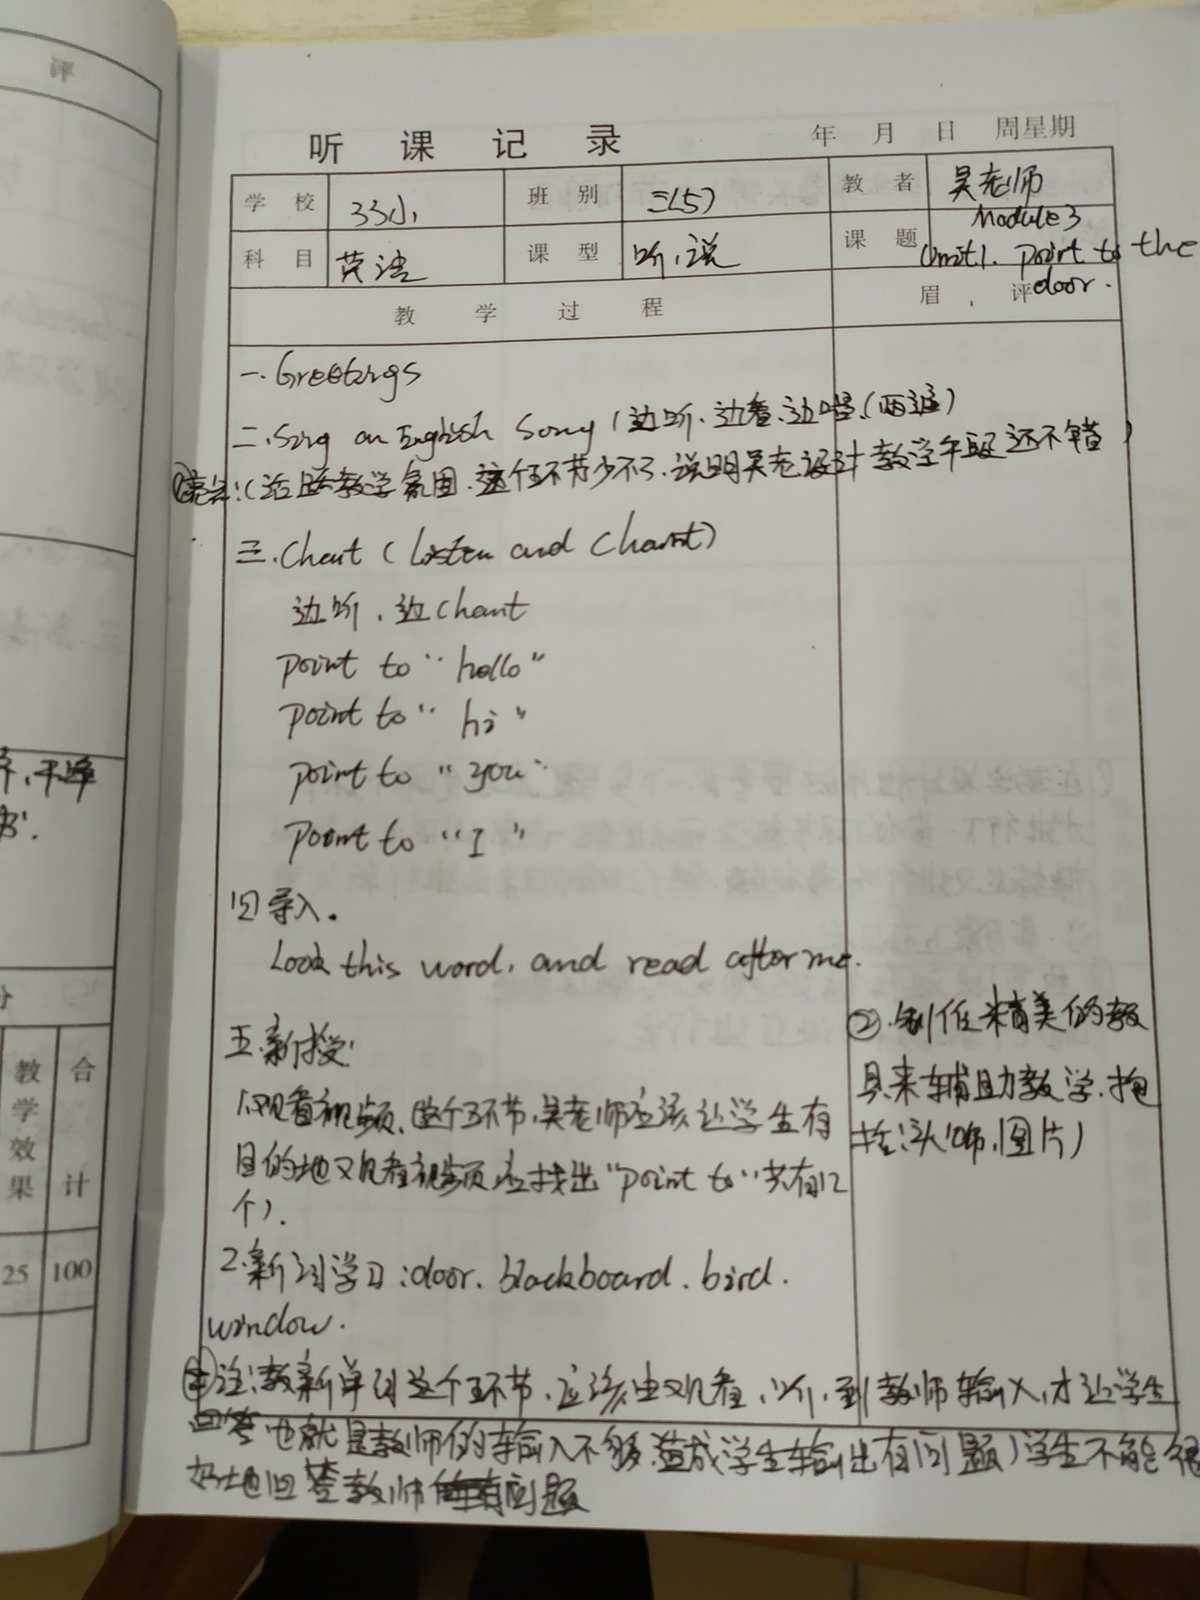 评
听课记录 年 月 日 周星期
学校 33小 班别 三(5) 教者 吴老师
科目 英语 课型 听、说 课题 Module 3
Unit 1. point to the
door.
教学过程 眉评
一. Greetings
二. Sing an English Song (边听、边看、边唱、(两遍)
①亮点:(活跃教学氛围.这个环节少不了.说明吴老设计教学年段还不错)
三. Chant (Listen and Chant)
边听、边chant
point to "hello"
point to "hi"
point to "you"
point to "I"
四导入.
Look this word, and read after me.
五.新授
1.观看视频.这个环节,吴老师应该让学生有
目的地观看视频应找出"point to"共有12
个).
2.新词学习:door. blackboard. bird.
window.
②.制作精美的教
具来辅助教学.抱
括:头饰.图片)
注:教新单词这个环节.应该由观看,听,到教师输入,才让学生
回答也就是教师的输入不够.造成学生输出有问题)学生不能很
好地回答教师问题
教学效果 合计
25 100